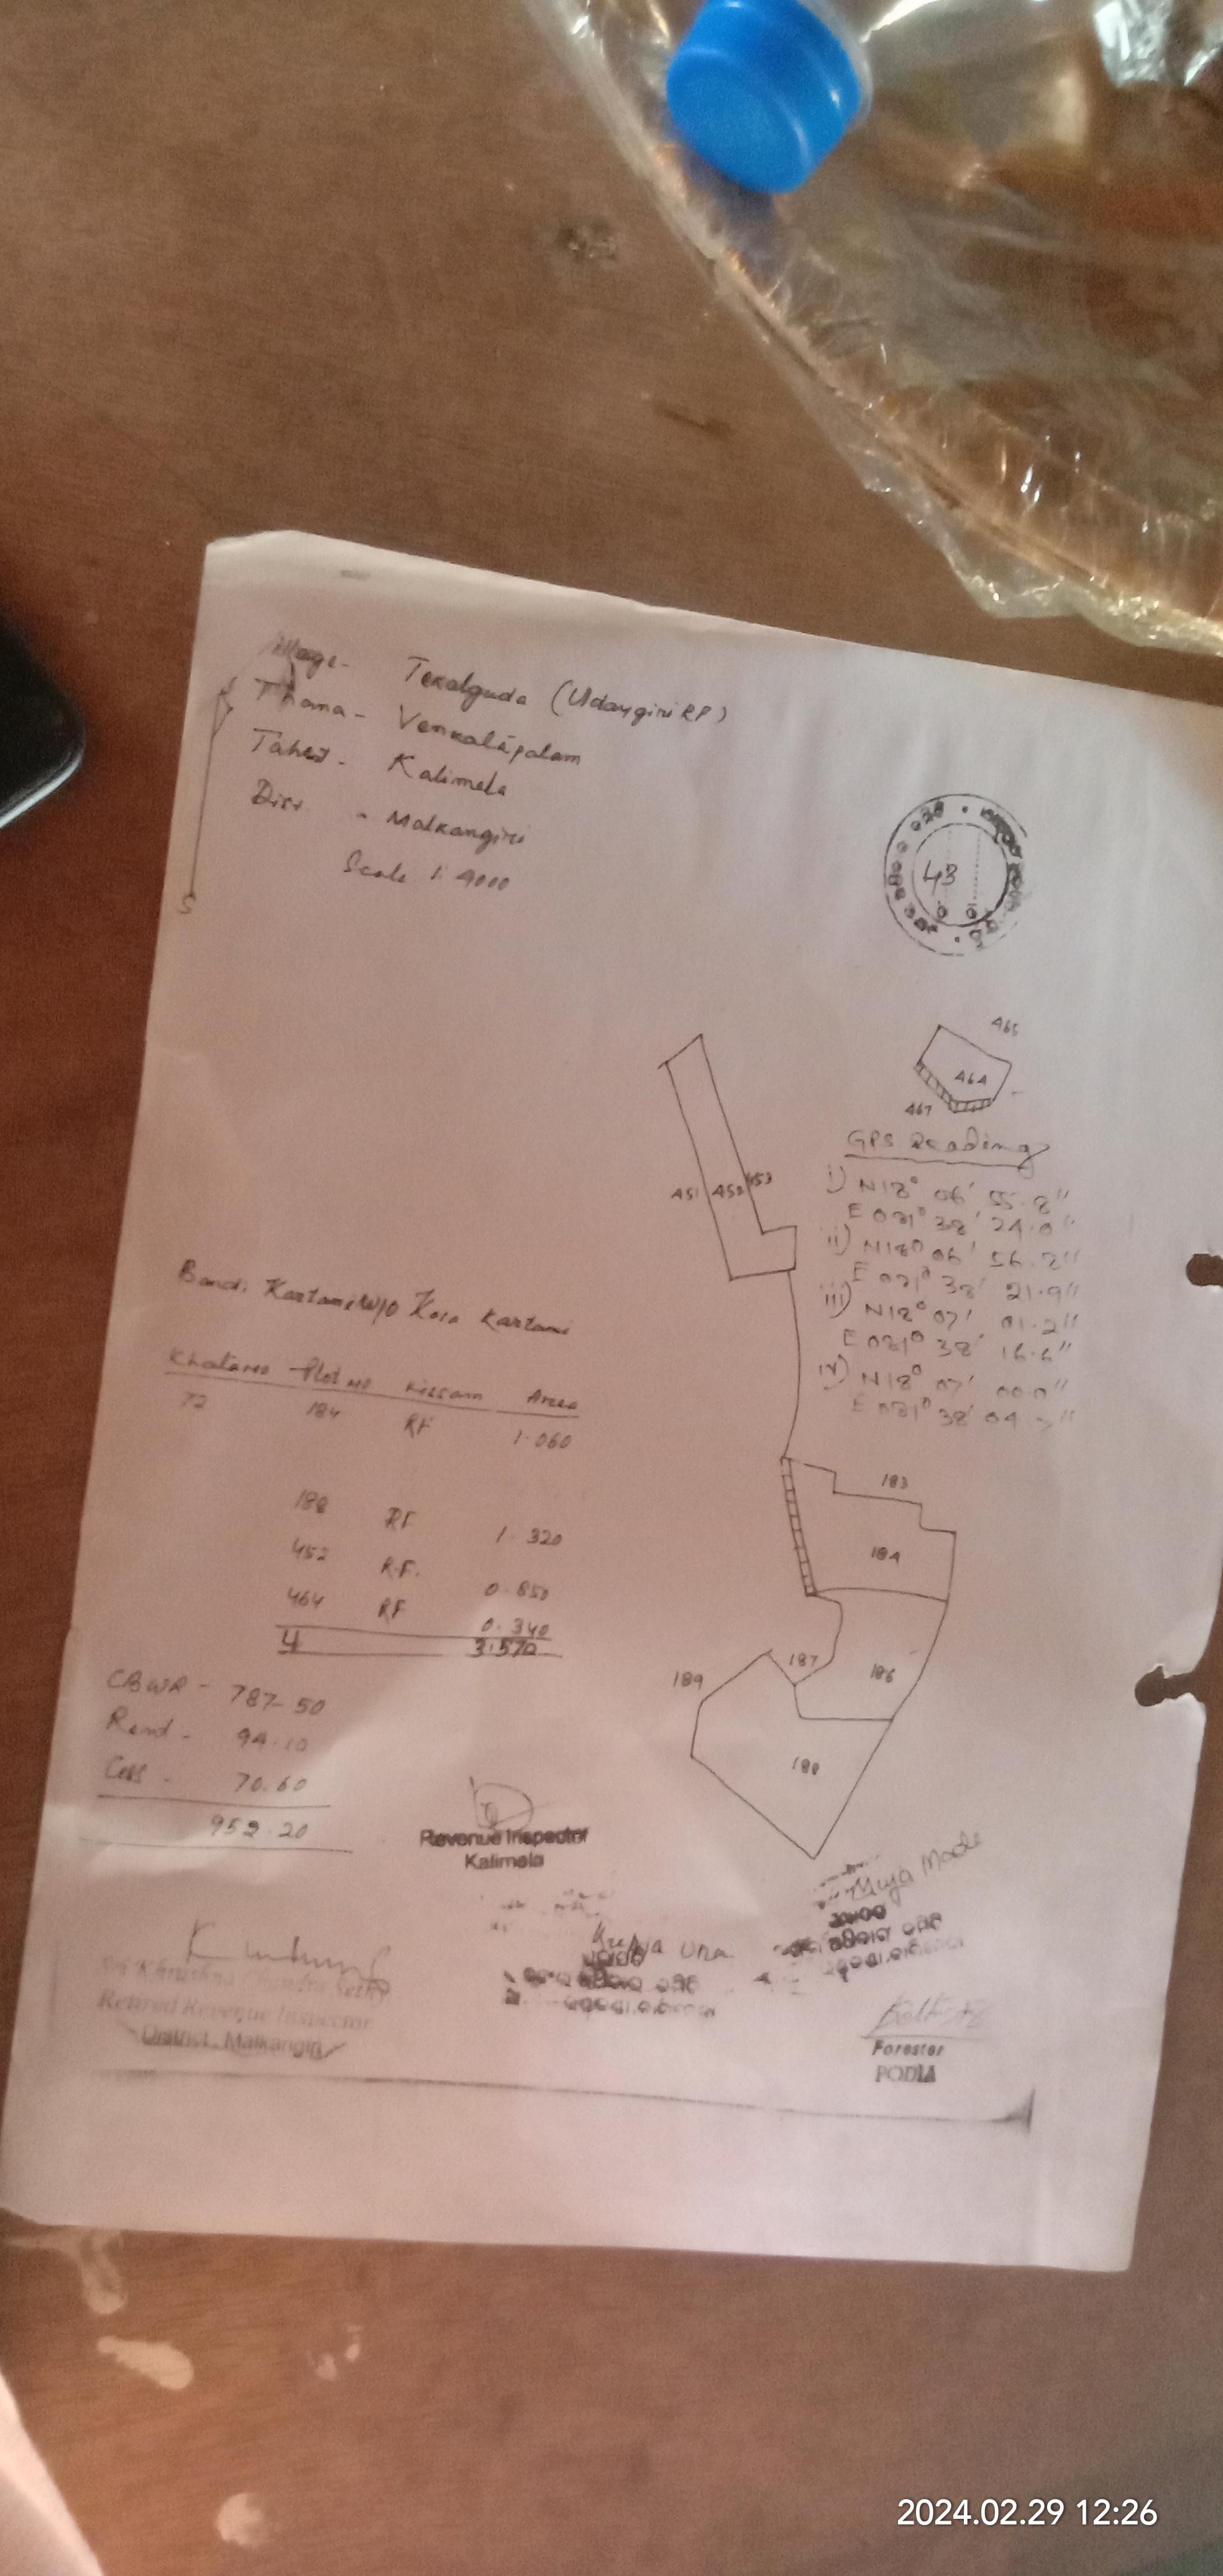 Village - Tekalguda (Udaygiri RF)
Thana - Venkatapalam
Tahsil - Kalimela
Dist - Malkangiri
Scale 1:4000
S
43
465
464
467
451 452 453
GPS Reading
i) N18° 06' 55.8"
E 081° 38' 24.0"
ii) N18° 06' 56.8"
E 081° 38' 21.9"
iii) N18° 07' 01.2"
E 081° 38' 16.6"
iv) N18° 07' 00.0"
E 081° 38' 04
Bandi Kartami W/O Kosa Kartami
Khata no Plot no Kissam Area
72 184 RF 1.060
188 RF 1.320
452 R.F. 0.850
464 RF 0.340
4 3.570
183
184
187
186
189
188
CBWR - 787-50
Rend - 94.10
Cess - 70.60
952.20
Revenue Inspector
Kalimela
Muja Made
Sri Krushna Chandra Sethi
Retired Revenue Inspector
District, Malkangiri
Forester
PODIA
2024.02.29 12:26